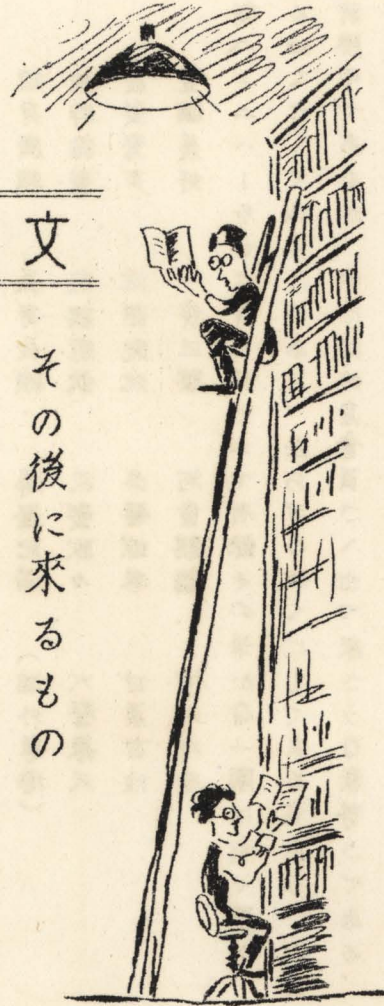 文
その後に來るもの